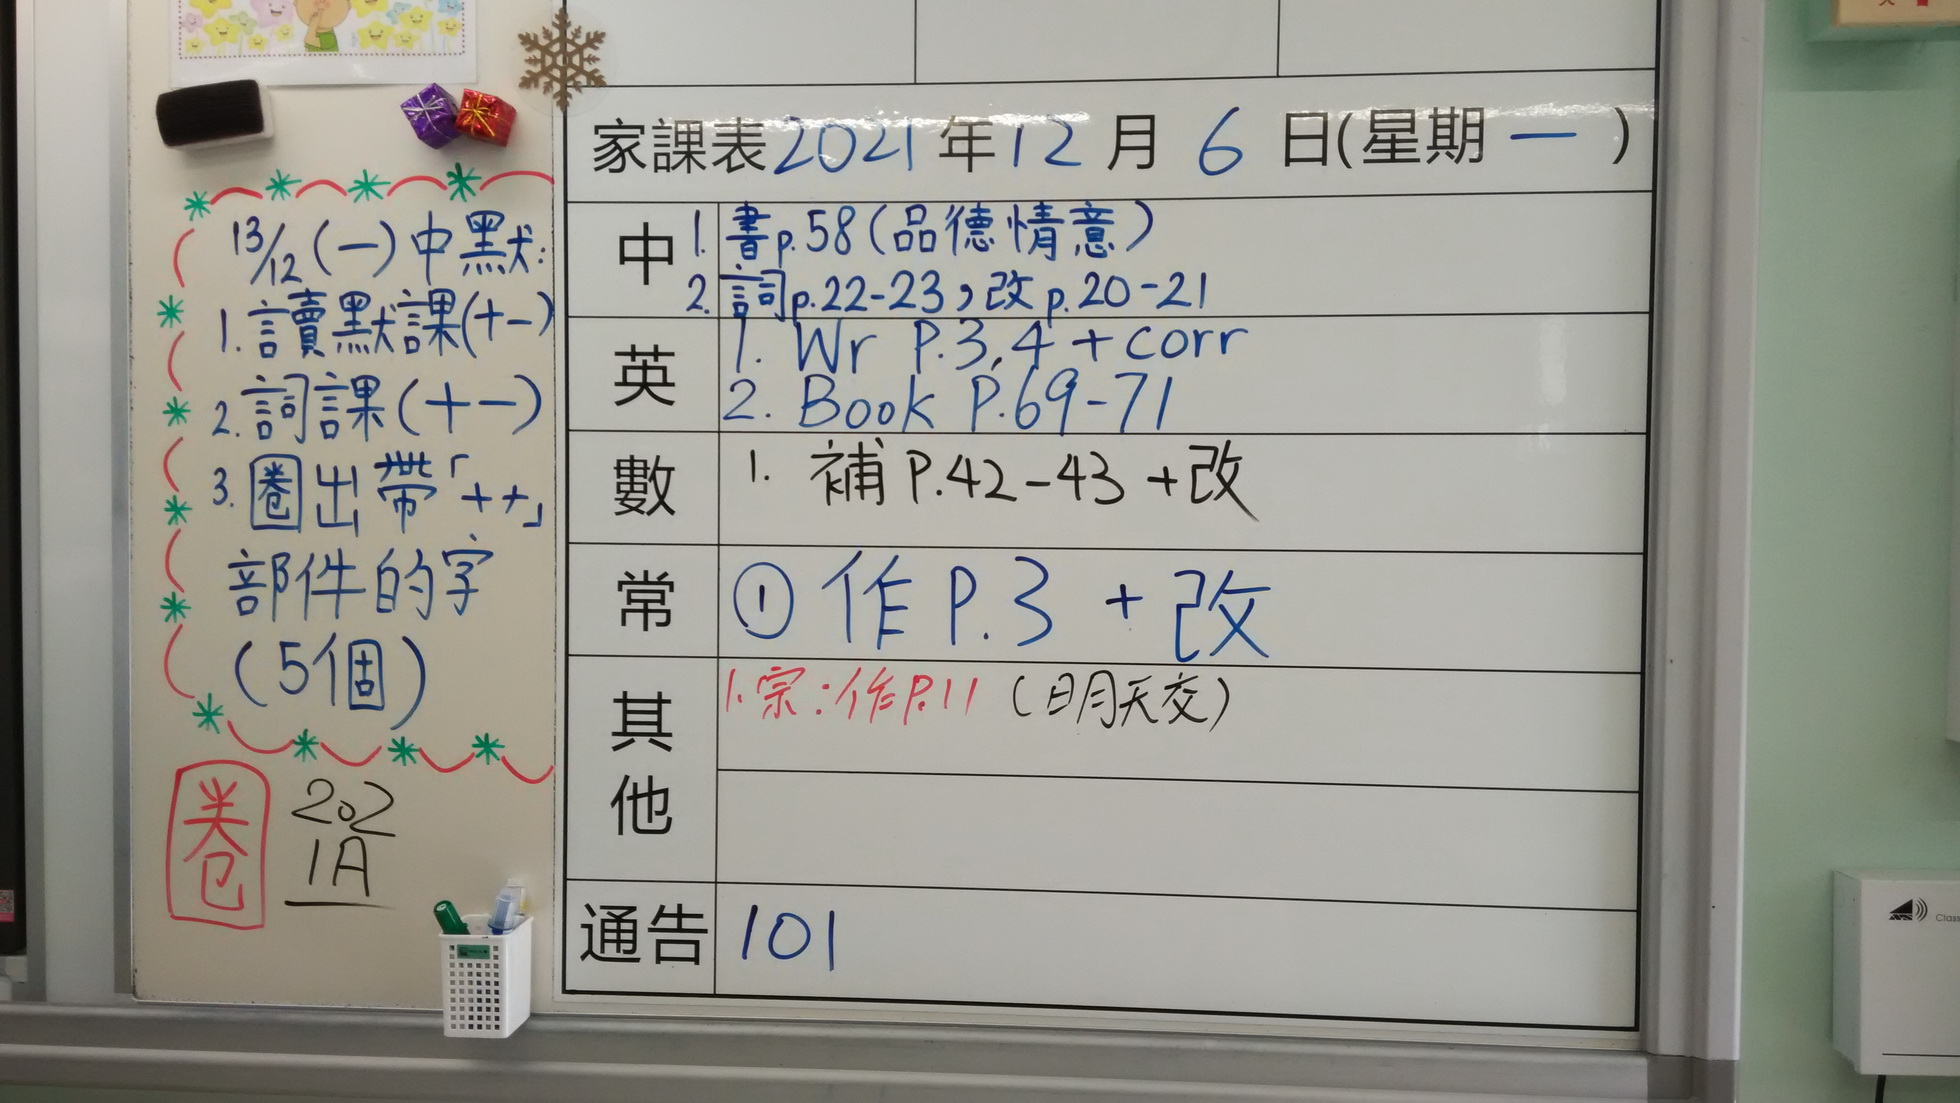 家課表2021年12月6日(星期一)
中
1. 書p.58(品德情意)
2. 詞p.22-23,改p.20-21
英
1. Wr P.3,4 + corr
2. Book P.69-71
數
1. 補P.42-43+改
常
① 作P.3 + 改
其他
1.宗:作P.11 (明天交)
通告
101
13/12(一)中默:
1.讀默課(十一)
2.詞課(十一)
3.圈出帶「++」
部件的字
(5個)
卷
202
1A
Class